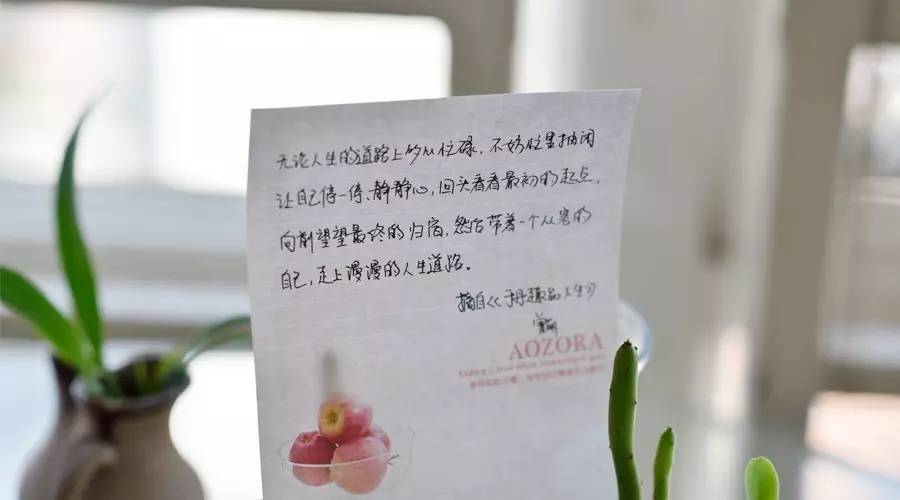 无论人生的道路上多么忙碌，不妨忙里抽闲
让自己停一停、静静心，回头看看最初的起点，
向前望望最终的归宿，然后带着一个从容的
自己，走上漫漫的人生道路。
摘自《于丹趣品人生》
AOZORA